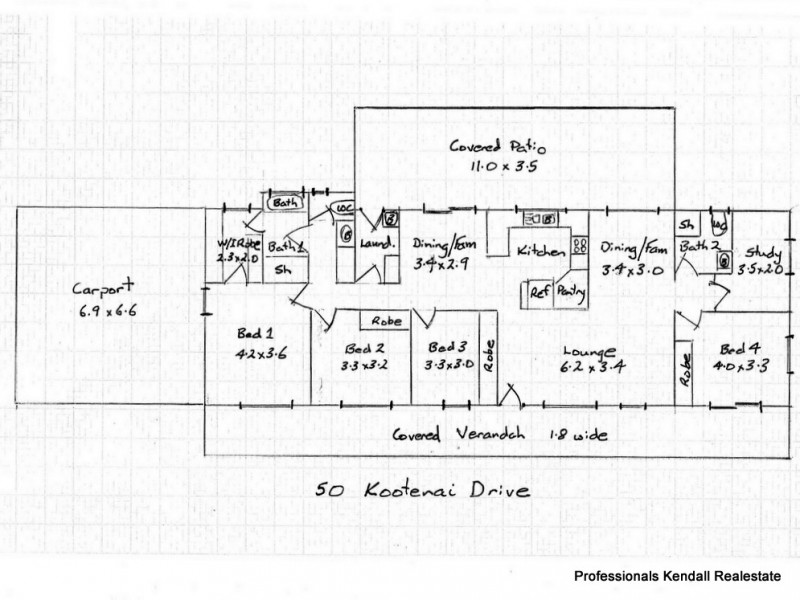 Covered Patio
11.0 x 3.5
Bath
WC
B
B
W/I Robe
2.3x2.0
Bath 1
Sh
Laund.
Dining/Fam
3.4 x 2.9
Kitchen
Ref
Pantry
Dining/Fam
3.4 x 3.0
Sh
WC
Bath 2
B
Study
3.5x2.0
Carport
6.9 x 6.6
Bed 1
4.2 x 3.6
Robe
Bed 2
3.3 x 3.2
Bed 3
3.3 x 3.0
Robe
Lounge
6.2 x 3.4
Robe
Bed 4
4.0 x 3.3
Covered Verandah 1.8 wide
50 Kootenai Drive
Professionals Kendall Realestate